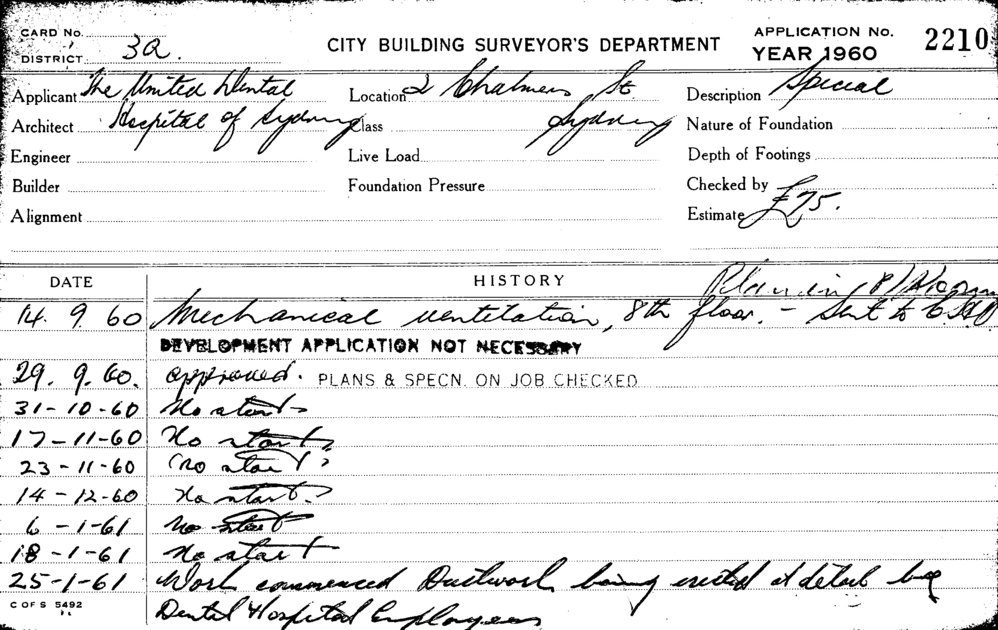 CARD No.
DISTRICT 3a.
CITY BUILDING SURVEYOR'S DEPARTMENT
APPLICATION No. 2210
YEAR 1960
Applicant The United Dental Location 2 Chalmers St. Description Special
Architect Hospital of Sydney Class Sydney Nature of Foundation
Engineer Live Load Depth of Footings
Builder Foundation Pressure Checked by
Alignment Estimate £75.
DATE HISTORY
14. 9. 60 Mechanical ventilation, 8th floor. - Sent to
DEVELOPMENT APPLICATION NOT NECESSARY
29. 9. 60. approved. PLANS & SPECN. ON JOB CHECKED
31-10-60 No start
17-11-60 No start
23-11-60 No start
14-12-60 No start
6-1-61 No start
18-1-61 No start
25-1-61 Work commenced Ductwork being erected
C OF S 5492 Dental Hospital Employees